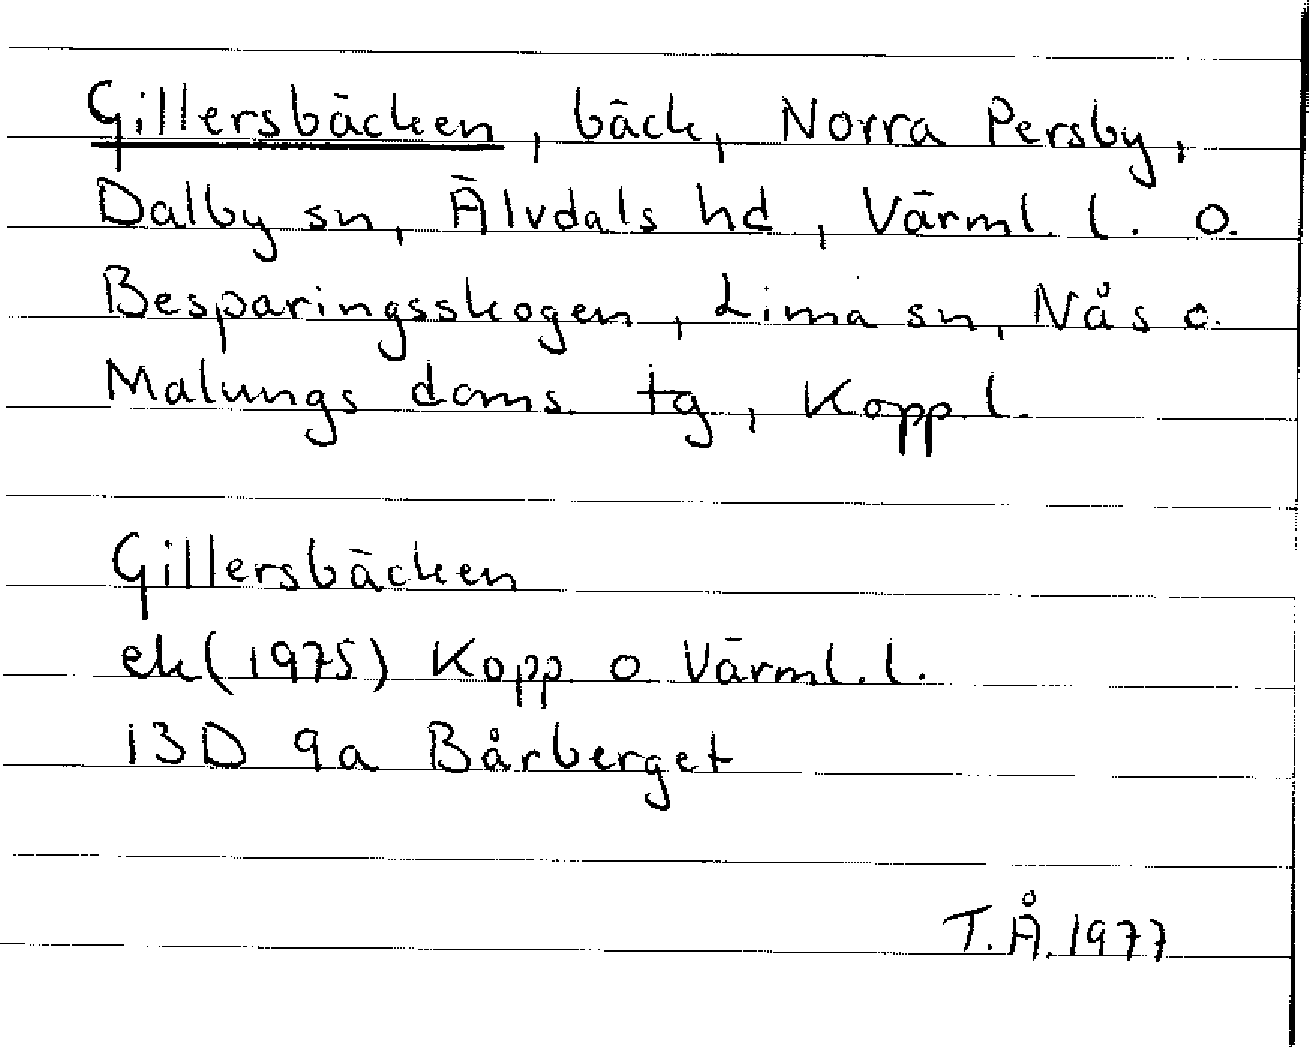 Gillersbäcken, bäck, Norra Persby,
Dalby sn, Älvdals hd, Värml. l. o.
Besparingsskogen, Lima sn, Nås o.
Malungs doms. tg, Kopp. l.
Gillersbäcken
ek (1975) Kopp. o. Värml. l.
13D 9a Bårberget
T.Å. 1977